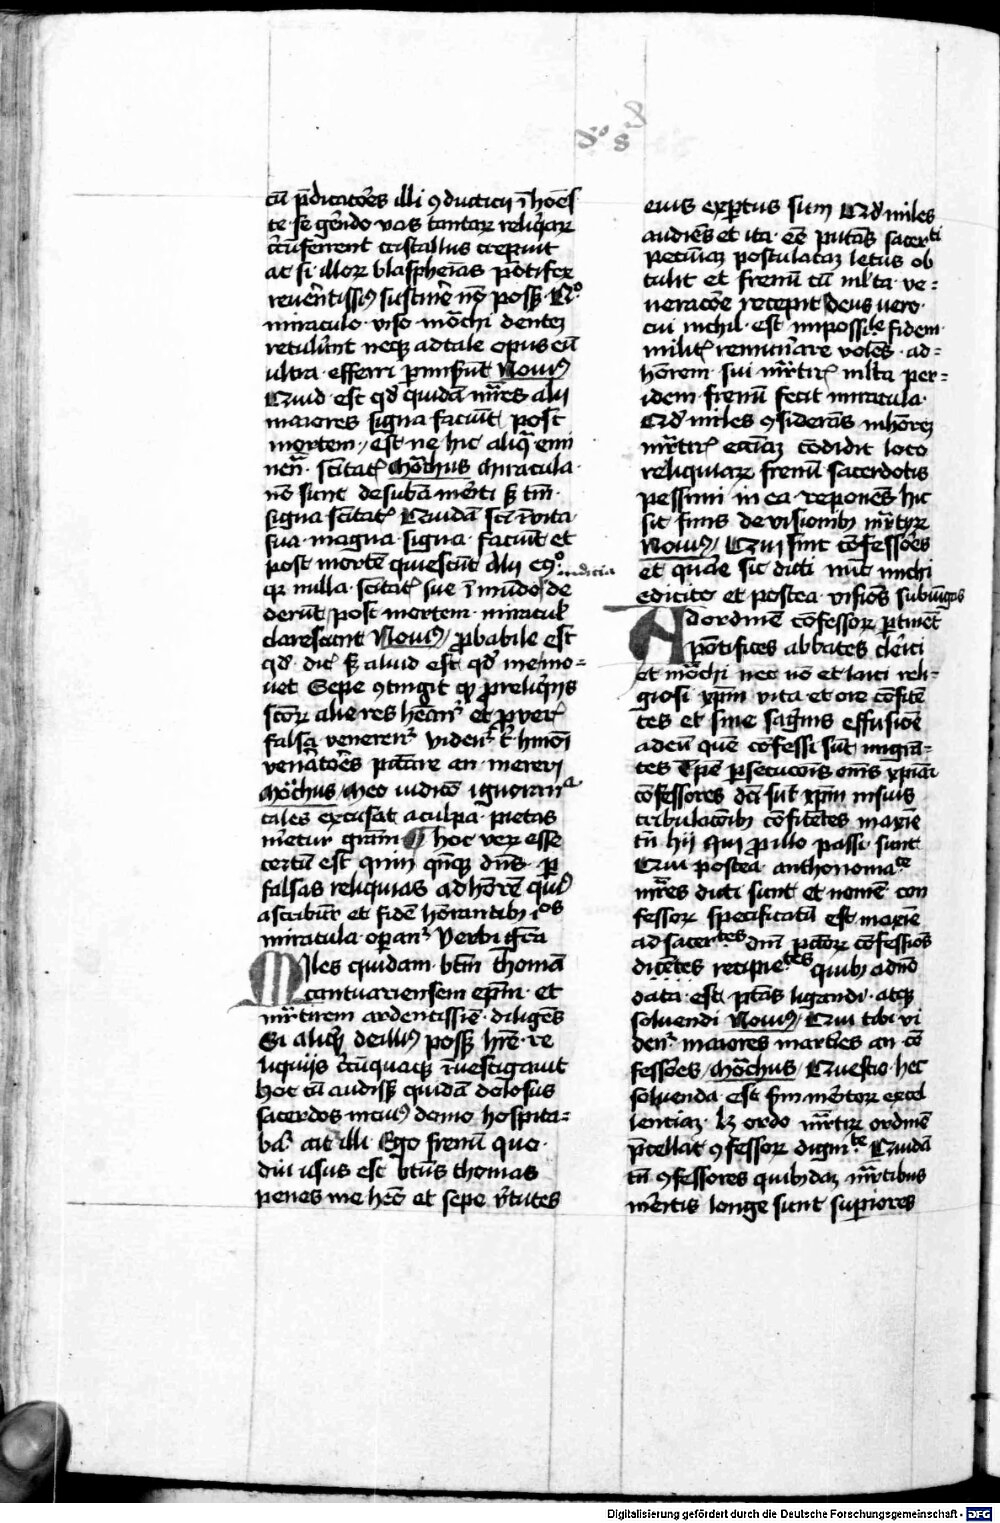 Dⁱᵒ 8ᵈ
cū p̄dicatōres illi ꝯducticij ī hōeſ
te ſe gerēdo vas tantaꝝ reliq̄aꝝ
c̄cūferrent criſtallus crepuit
ac ſi illoꝝ blaſphemīas pōtifex
reuerētiſſiꝰ ſuſtinē nō poſſꝫ Qᵒ
miraculo viſo mōchi dentē
retulerūnt neqꝫ ad tale opus eū
ultra efferri ꝑmiſer̄ūt Nouiꝰ
Quid eſt qd̄ quidā mr̄es alij
maiores ſigna faciūt poſt
mortem / eſt ne hic aliq̄ emi
nēn ſcītatꝭ Mōchus Miracula
nō ſunt de ſubā meriti ſꝫ tm̄
ſigna ſcītatꝭ Quidā ſcī ī vita
ſua magna ſigna faciūt et
poſt mortē quieſcūt Alij eᵒ
indicia
qꝛ nulla ſcītatꝭ ſue ī mūdo de
derūt / poſt mortem miraculꝭ
clareſcunt Nouiꝰ / ꝓbabile eſt
qd̄ dicꝭ ſꝫ aliud eſt qd̄ me mo⸗
uet Sepe ꝯtingit qꝫ ꝓ reliq̄ijs
ſcōꝝ alie res hēantꝰ et ꝓ verꝭ
falſa venerentꝰ videntꝰ tꝰ hmōi
venātōres pccare an mereri
Mōchus / Meo iudicō ignorantᵃ
tales excuſat a culpa pietas
meretur grām Hoc veꝝ eſſe
certū eſt qm̄ qn̄qꝫ dn̄s ꝑ
falſas reliquias ad hōrē quibꝰ
aſcribūr et fidē hōrantibꝫ iᵒs
miracula oꝑantꝰ Verbi gr̄a
Miles quidam btm̄ thomā
cantuarienſem epm̄ et
mr̄tirem ardentiſſīe diligēs
Si aliqd̄ de illiꝰ poſſꝫ hr̄e re
liquijs c̄cūquaqꝫ īueſtigauit
Hoc cū audiſſꝫ quidā doloſus
ſacerdos in cuiꝰ domo hoſpita⸗
bat̄ ait illi Ego frenū quo
diu uſus eſt btūs thomas
penes me hēo et ſepe v̄tutes
eius exꝑtus ſum Qd̄ miles
audiēs et ita eē putās ſacerᵗⁱ
pecūiaꝫ poſtulataꝫ letus ob
tulit et frenū cū ml̄ta ve⸗
neracōe recepit Deus vero
cui nichil eſt impoſſiᵇᵉ fidem
militꝭ remunerare volēs ad⸗
hōrem ſui mr̄tirꝭ ml̄ta per⸗
idem frenū fecit miracula
Qd̄ miles ꝯſiderās in hōreꝫ
mr̄tirꝭ ecciāꝫ cōdidit loco
reliquiaꝝ frenū ſacerdotis
peſſimi in ea reponēs hic
ſit finis de viſionibꝫ mr̄tyꝝ
Nouiꝰ / Qui ſint cōfeſſōres
et quare ſic dicti nūc michi
edicito et poſtea viſiōes ſubiūgas
Ad ordinē cōfeſſoꝝ ꝑtinēt
pōtifices abbates clerici
et mōchi nec nō et laici reli⸗
gioſi xpm̄ vita et ore cōfitē
tes et ſine ſāgīnis effuſiōe
ad eū quē cōfeſſi ſūt migrā⸗
tes Tp̄e ꝑſecucōnis om̄s xpiāi
cōfeſſores dc̄i ſūt xpm̄ in ſuis
tribulacōibꝫ cōfitētes maxīe
tn̄ hij qui ꝓ illo paſſi ſunt
Qui poſtea anthonomaᶜᵉ
mr̄es dicti ſunt et nomē con
feſſoꝝ ſpecificatū eſt maxīe
ad ſacerᵗᵉˢ dn̄i pc̄toꝝ cōfeſſiōs
dicētes recipieᵗᵉˢ quibꝫ a dn̄o
data eſt ptās ligandi atqꝫ
ſoluendi Nouiꝰ / Qui tibi vi
dentꝰ maiores martires an cō
feſſōres / Mōchus / Queſtio hec
ſoluenda eſt ſm̄ meritoꝝ excel
lenciaꝫ Lꝫ ordo mr̄tiꝝ ordinē
p̄cellat ꝯfeſſoꝝ dignitᵗᵉ Quidā
tn̄ ꝯfeſſores quibꝫdaꝫ mr̄tiribus
meritis longe ſunt ſuꝑiores
Digitalisierung gefördert durch die Deutsche Forschungsgemeinschaft - DFG